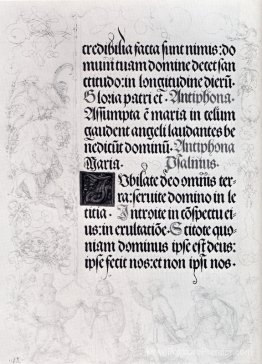 credibilia facta sunt nimis: do
mum tuam domine decet san
ctitudo: in longitudine dierū.
Gloria patri et. Antiphona.
Assumpta ē maria in celum
gaudent angeli laudantes be
nedicūt dominū. Antiphona
Maria. Psalmus.
IVbilate deo omnis ter-
ra: seruite domino in le
titia. Introite in cōspectu ei-
us: in exultatiōe. Scitote quo-
niam dominus ipse est deus:
ipse fecit nos: et non ipsi nos.